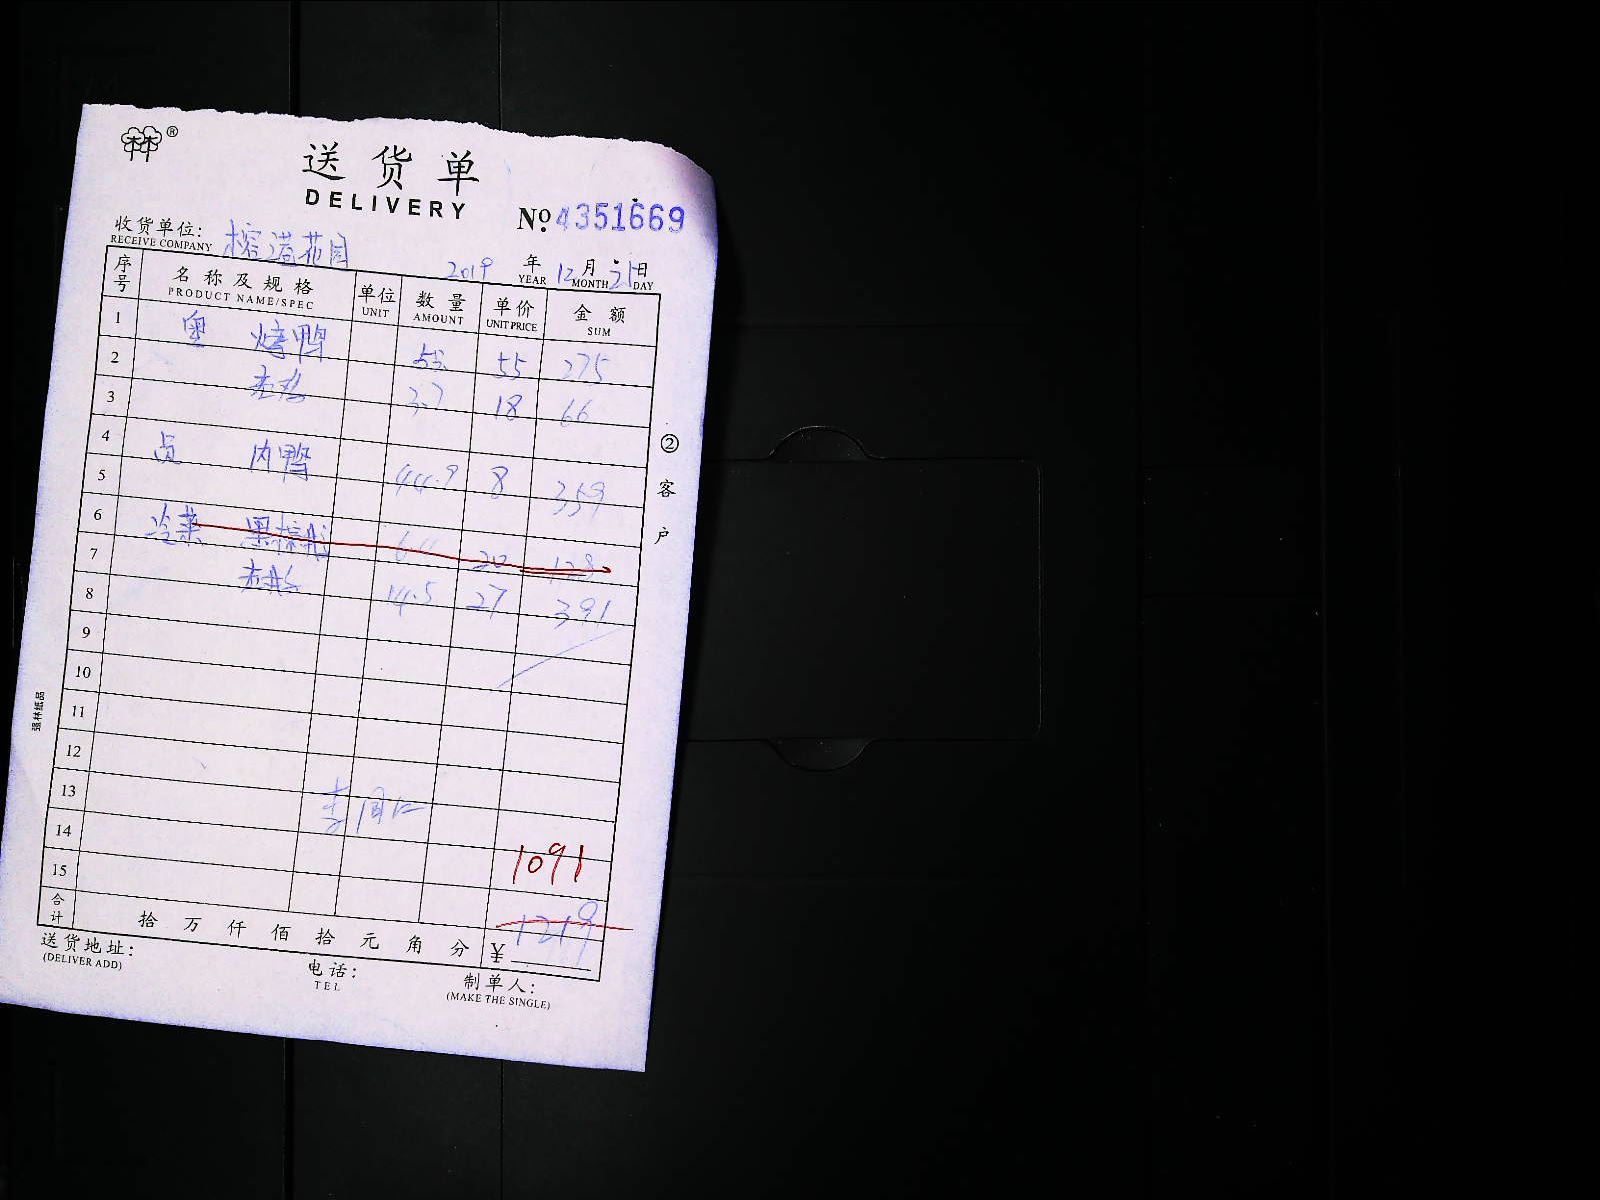 ®
送货单
DELIVERY
№ 4351669
收货单位: 榕港花园
RECEIVE COMPANY
2019 年 12 月 21 日
YEAR MONTH DAY
序号 名称及规格 单位 数量 单价 金额
PRODUCT NAME/SPEC UNIT AMOUNT UNIT PRICE SUM
1 粤 烤鸭 55 275
2 3.7 18 66
3
4 员 内鸭 44.9 8 359
5
6 冷菜 20 128
7 14.5 27 391
8
9
10
11
12
13
14 1091
15
合计 拾 万 仟 佰 拾 元 角 分 ¥ 1219
送货地址:
(DELIVER ADD)
电话:
TEL
制单人:
(MAKE THE SINGLE)
② 客户
强林纸品